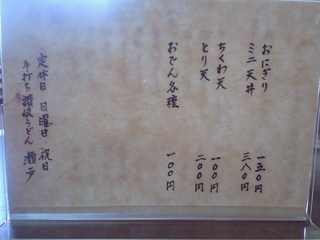 おにぎり 一五〇円
ミニ天丼 三八〇円
ちくわ天 一〇〇円
とり天 二〇〇円
おでん各種 一〇〇円
定休日 日曜日・祝日
手打ち讃岐うどん 瀬戸